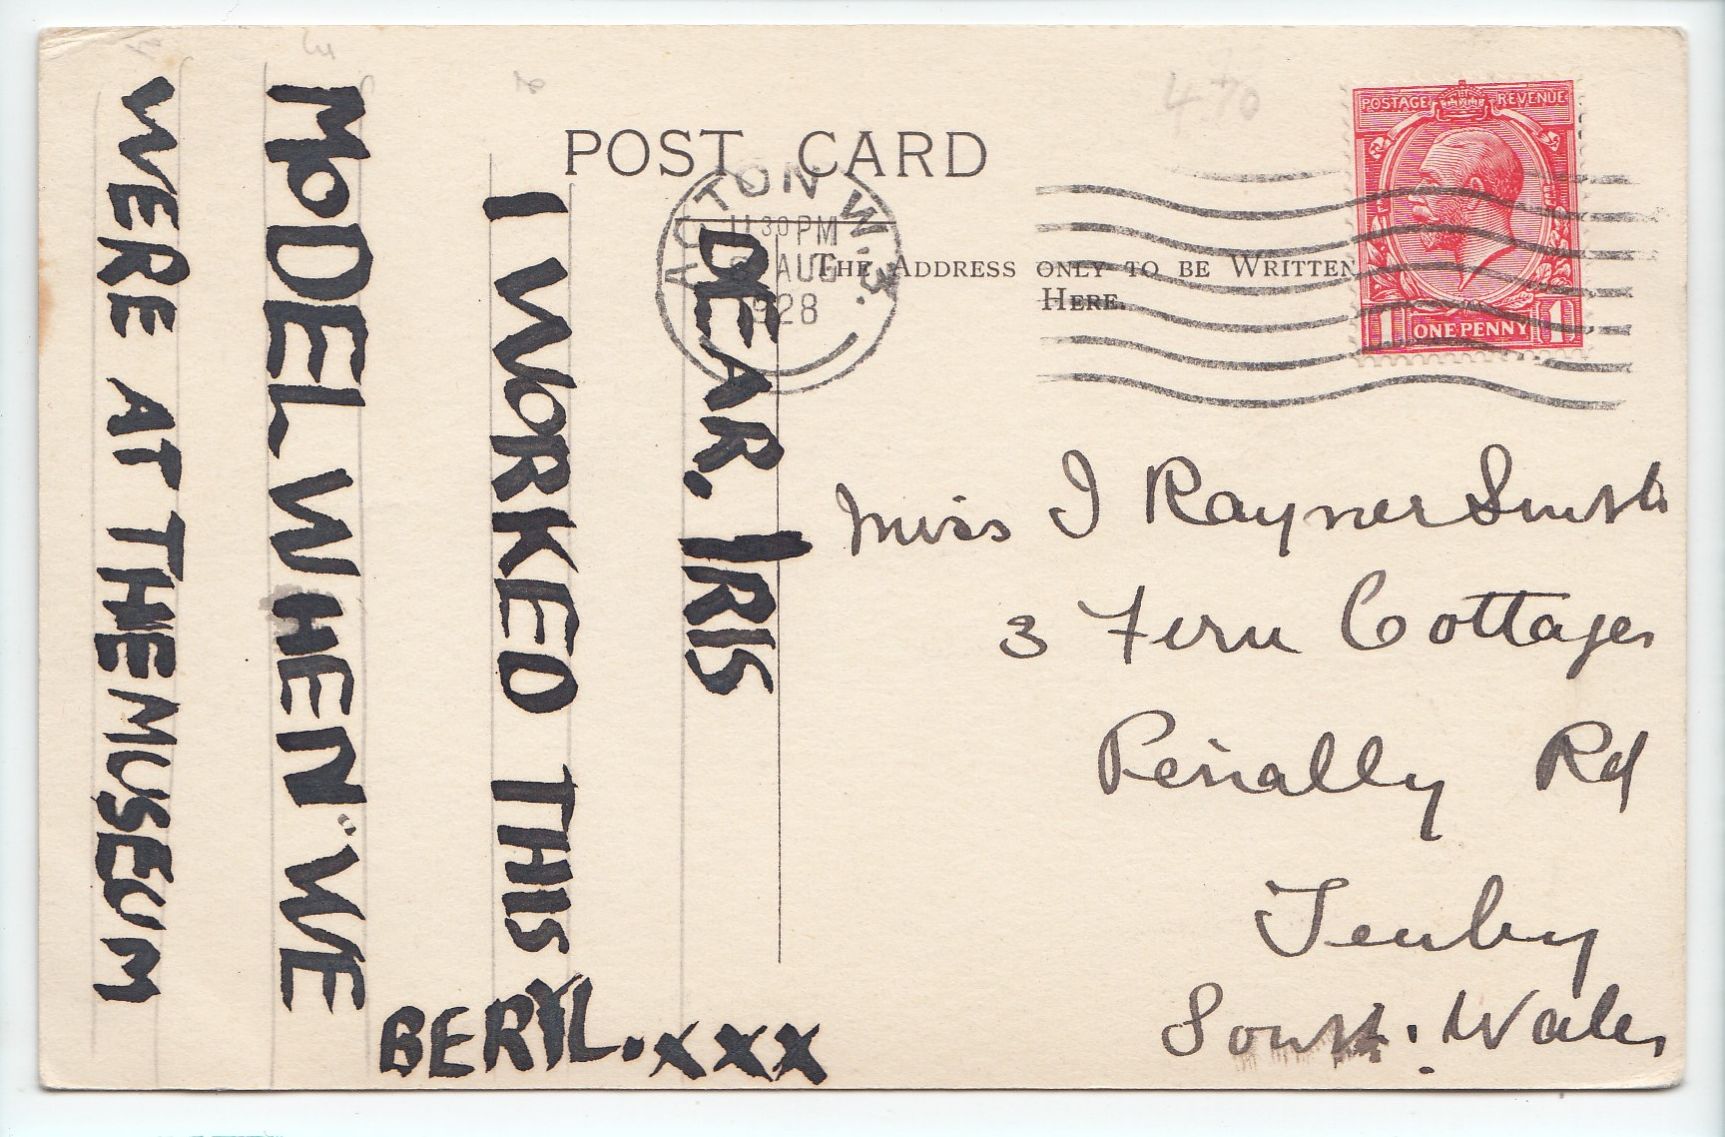 POST CARD
THE ADDRESS ONLY TO BE WRITTEN
HERE.
ACTON W.3.
11 30 PM
AUG
1928
POSTAGE REVENUE
1 ONE PENNY 1
DEAR. IRIS
I WORKED THIS
MODEL WHEN" WE
WERE AT THE MUSEUM
BERYL. xxx
Miss I Rayner Smith
3 Fern Cottages
Penally Rd
Tenby
South. Wales